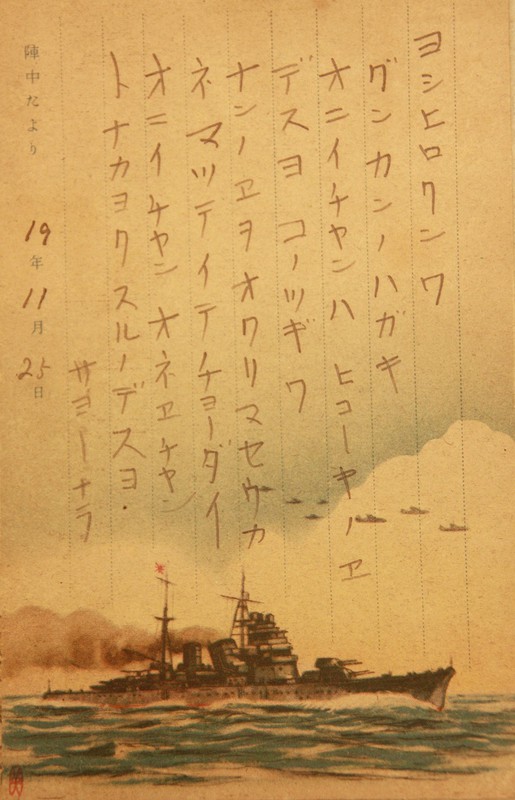 ヨシヒロクンワ
グンカンノハガキ
オニイチヤンハ ヒコーキノヱ
デスヨ コノツギワ
ナンノヱヲオクリマセウカ
ネ マツテイテチョーダイ
オニイチヤン オネヱチヤン
トナカヨクスルノデスヨ.
サヨーナラ
陣中だより
19年11月25日